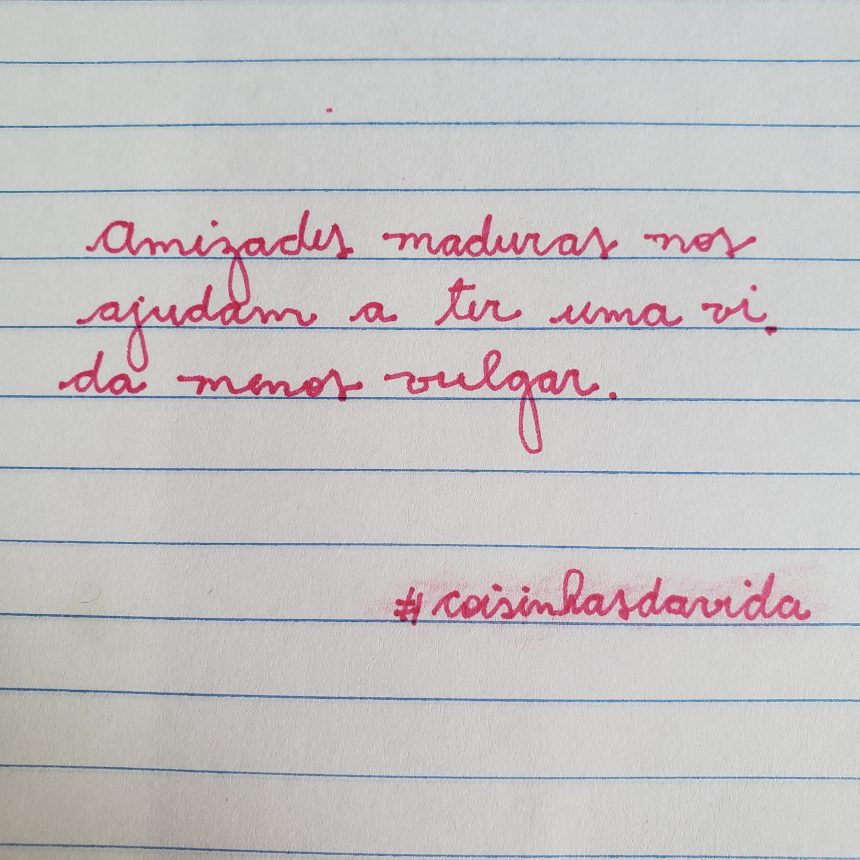 Amizades maduras nos
ajudam a ter uma vi.
da menos vulgar.
#coisinhasdavida